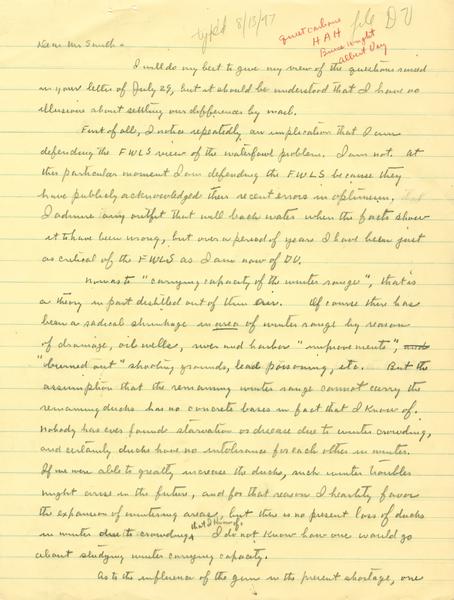 typed 8/13/47
file DU
green carbons
HAH
Bruce Wright
Albert Day
Dear Mr Smith -
I will do my best to give my view of the questions raised
in your letter of July 29, but it should be understood that I have no
illusions about settling our differences by mail.
First of all, I notice repeatedly an implication that I am
defending the FWLS view of the waterfowl problem. I am not. At
this particular moment I am defending the FWLS because they
have publicly acknowledged their recent errors in optimism, that
I admire any outfit that will back water when the facts show
it to have been wrong, but over a period of years I have been just
as critical of the FWLS as I am now of DU.
Now as to "carrying capacity of the winter range", that is
a theory in part distilled out of thin air. Of course there has
been a radical shrinkage in area of winter range by reason
of drainage, oil wells, river and harbor "improvements", and
"burned out" shooting grounds, lead poisoning, etc. But the
assumption that the remaining winter range cannot carry the
remaining ducks has no concrete bases in fact that I know of.
Nobody has ever found starvation or disease due to winter crowding,
and certainly ducks have no intolerance for each other in winter.
If we were able to greatly increase the ducks, such winter troubles
might arise in the future, and for that reason I heartily favor
the expansion of wintering areas, but there is no present loss of ducks
that I know of.
in winter due to crowding, I do not know how one would go
about studying winter carrying capacity.
As to the influence of the gun in the present shortage, one